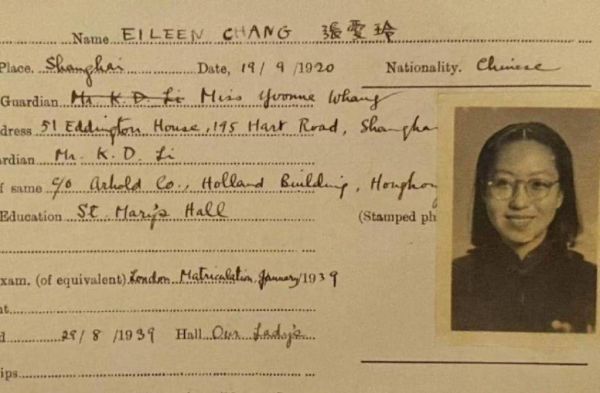 Name EILEEN CHANG 張愛玲
Place. Shanghai Date, 19/9/1920 Nationality. Chinese
Guardian Mr. K. D. Li Miss Yvonne Whang
dress 51 Eddington House, 195 Hart Road, Shangha
rdian Mr. K. D. Li
f same c/o Arnhold Co., Holland Building, Hongkong
Education St. Mary's Hall (Stamped ph
xam. (of equivalent) London Matriculation, January/1939
nt
d 29/8/1939 Hall Our Lady's
ips